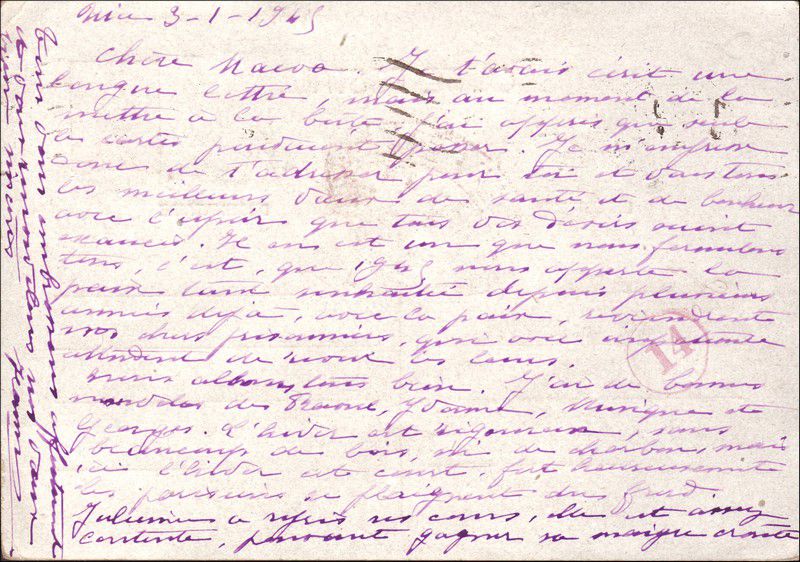 Nice 3-1-1945
Chère . Je t'avais écrit une
longue lettre, mais au moment de la
mettre à la boite j'ai appris que seule
les cartes pouvaient passer. Je m'empresse
donc de t'adresser pour toi et vous tous
les meilleurs vœux de santé et de bonheur
avec l'espoir que tous vos désirs soient
exaucés. Il en est un que nous formulons
tous, c'est, que 1945 nous apporte la
paix tant souhaitée depuis plusieurs
années déjà, avec la paix, reviendront
nos chers prisonniers, qui avec
attendent de revoir les leurs.
Nous allons tous bien. J'ai de bonnes
nouvelles de Raoul, Yvonne, et
Georges. L'hiver est rigoureux, sans
beaucoup de bois, ni de charbon, mais
ici l'hiver est court. fort heureusement
les parisiens se plaignent du froid
Julienne a repris ses cours, elle est assez
contente, pouvant gagner sa maigre croute
14
Tous vous embrassent
et vous